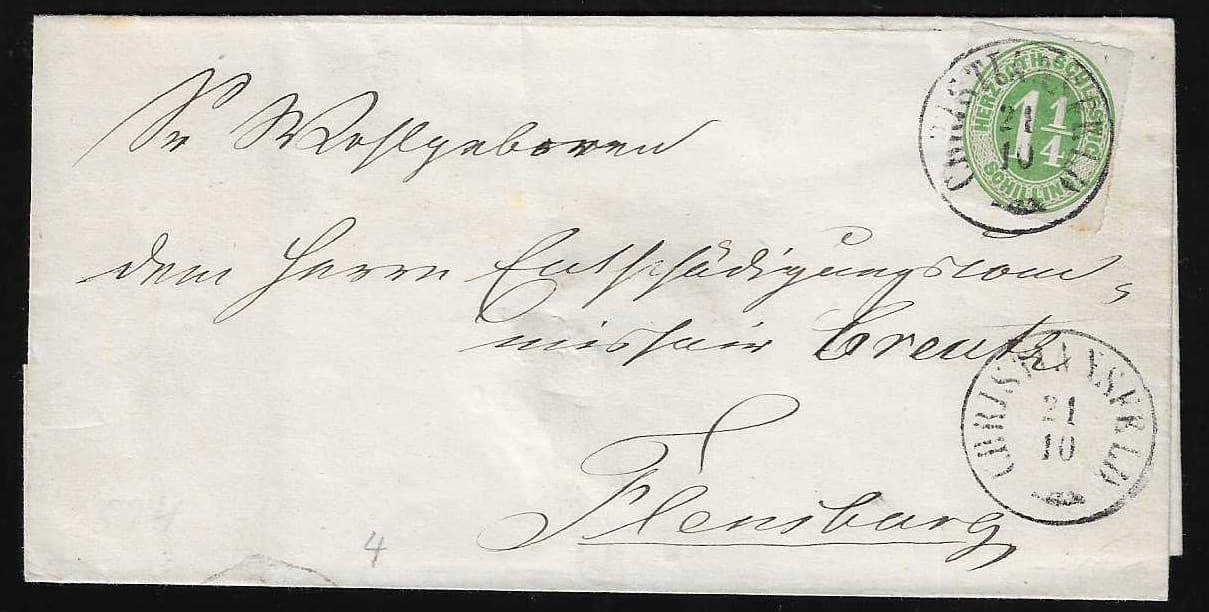 Sr Wohlgeboren
dem Herrn Entschädigungscom-
missair Creutz
Flensburg
HERZOGTH. SCHLESWIG
1 1/4
SCHILLING
CHRISTIANSFELD
21
10
CHRISTIANSFELD
21
10
4